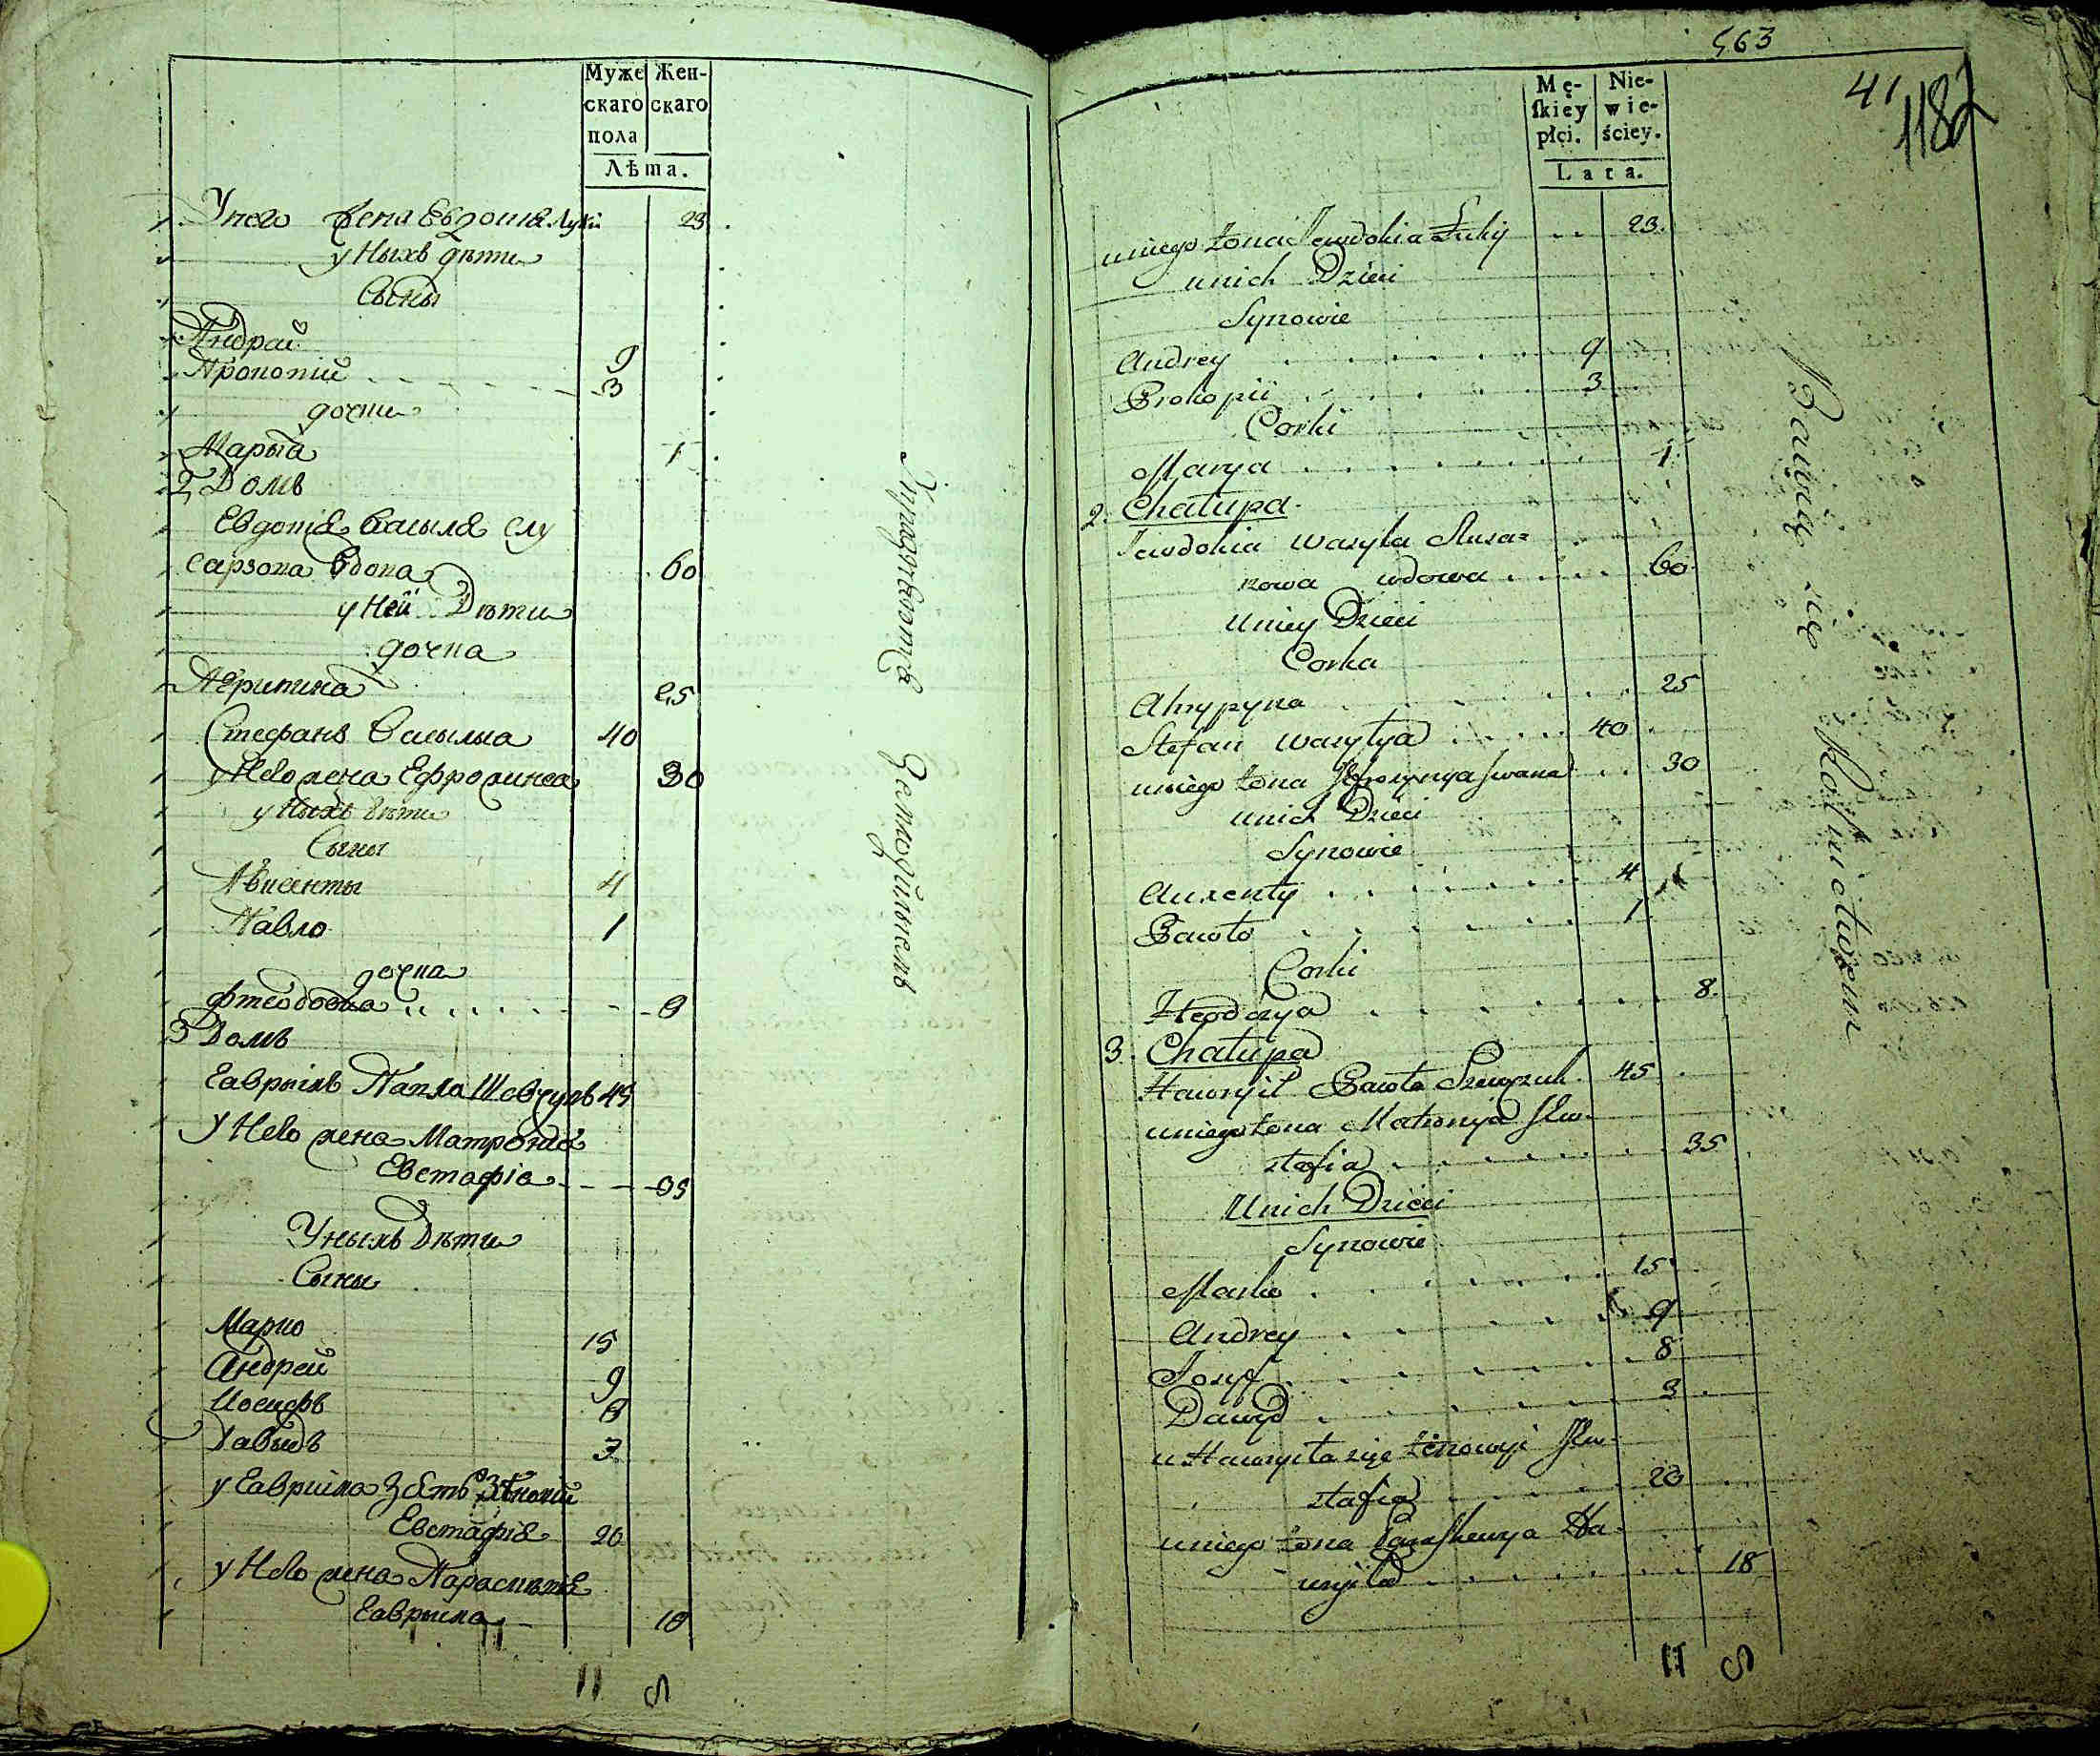 Муже Жен-
скаго скаго
пола
Лѣта.
У него жена Евдошя Луки 23
у Ныхъ дѣти
Сыны
Андрай 9
Прокопій 3
дочти
Марыя 1
2 Домъ
Евдотя Васыля Слу
сарзона вдова 60
у Ней Дѣти
дочка
Агрипина 25
Стефанъ Васылыа 40
у Него жена Ефрожинеа 30
у Ныхъ дѣти
Сыны
Авксенты 4
Павло 1
дочка
Фтеодосиа 8
3 Домъ
Гаврыілъ Павла Шевчукъ 45
у Него жена Матронія
Евстафіа 35
У ныхъ Дѣти
Сыны
Марко 15
Андрей 9
Иосифъ 8
Давыдъ 3
у Гавриила Зять Зѣновій
Евстафія 20
у Него жена Параскевія
Гаврыла 18
11 5
Упражняются Земледѣліемъ
563
41
1182
Mę- Nie-
skiey wie-
płci. ściey.
Lata.
u niego żona Jewdokia Łuky 23
u nich Dzieci
Synowie
Andrey 9
Prokopii 3
Corki
Marya 1
2. Chałupa
Jewdokia Wasyla Slusa=
rzowa wdowa 60
u niey Dzieci
Corka
Ahrypyna 25
Stefan Wasylya 40
u niego żona Jefrozynya Jwana 30
u nich Dzieci
Synowie
Auxenty 4
Pawło 1
Corki
Fteodozya 8
3. Chałupa
Hawryił Pawła Szewczuk 45
u niego żona Matronija Jew-
stafia 35
U nich Dzieci
Synowie
Marko 15
Andrey 9
Josyf 8
Dawyd 3
u Hawryła zięć Zienowyi Jew-
stafia 20
u niego żona Paraskewya Ha-
wryiła 18
11 5
Bawią się Rolnictwem